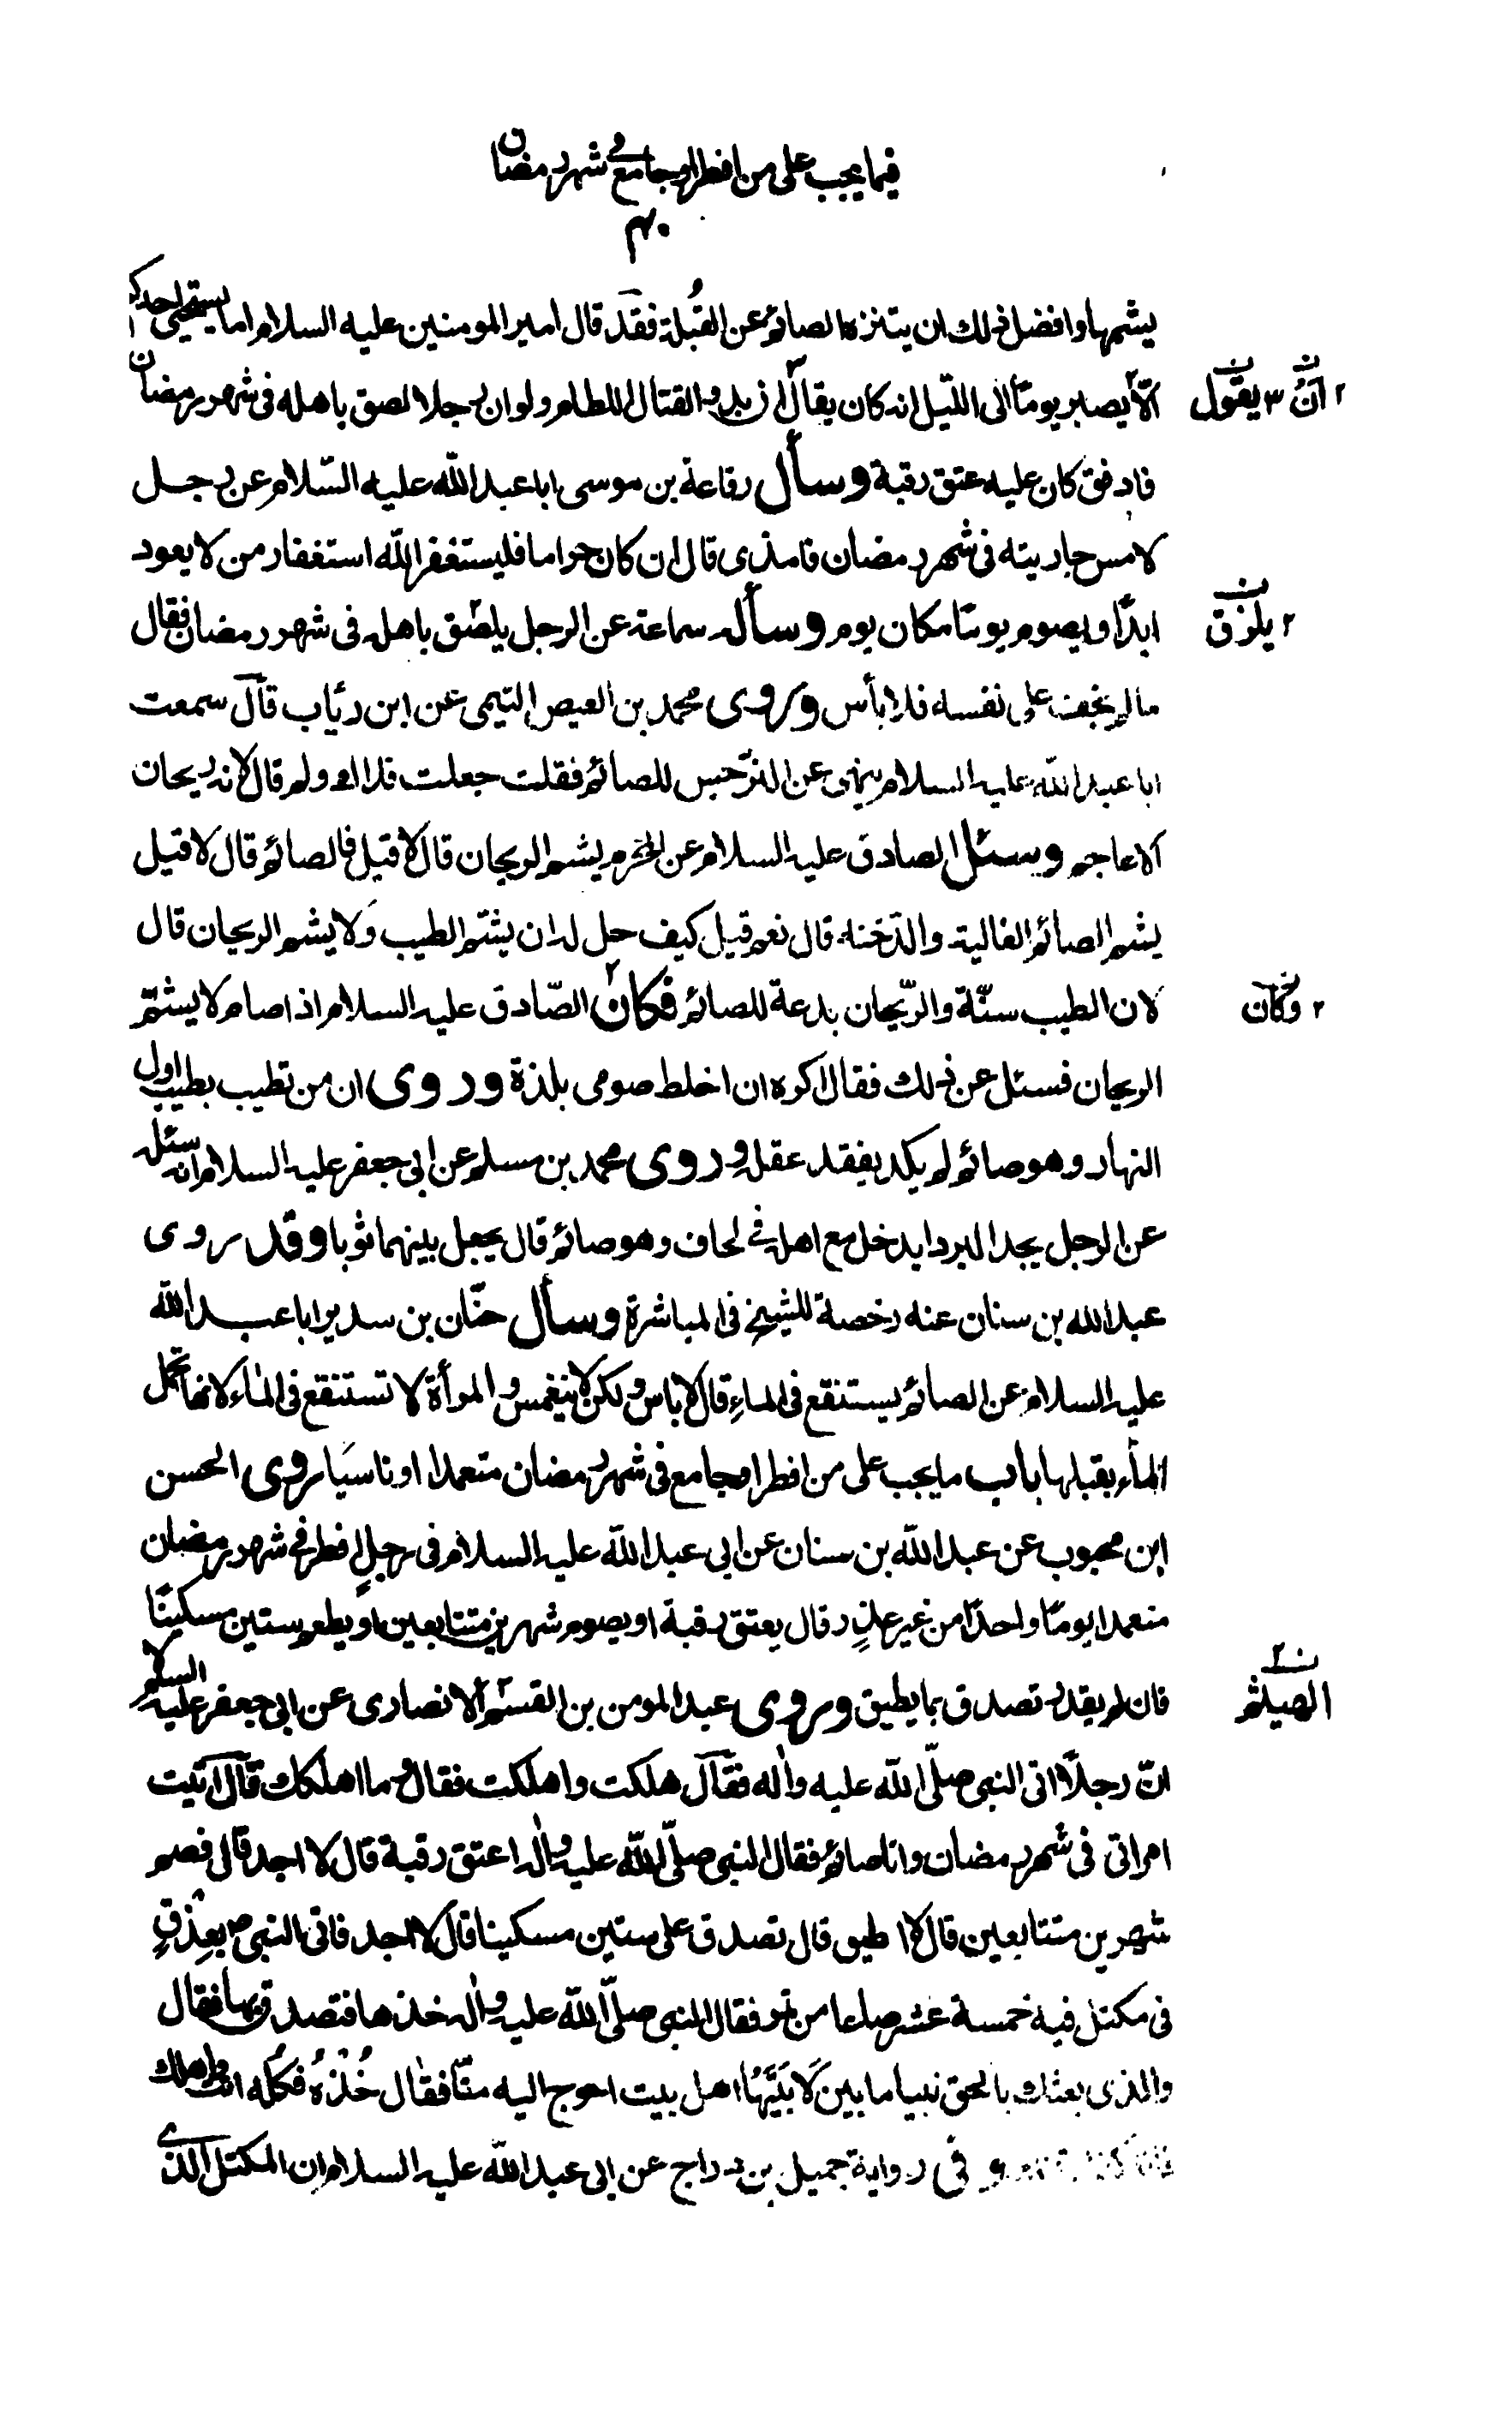 فيما يجب على من افطر او جامع في شهر رمضان
۴۰
يشمها وافضل ذلك ان يتنزه الصائم عن القُبلة فقد قال امير المومنين عليه السلام اما يستحيي احدكم
ألّا يصبر يومًا الى اللّيل انه كان يقال ان بدو القتال اللطام ولو ان رجلا لصق باهله فى شهر رمضان
۲ اَنَّ ۳ يقول
فادفق كان عليه عتق رقبة وسأل رفاعة بن موسى ابا عبد اللّه عليه السّلام عن رجل
لامس جاريته فى شهر رمضان فامذى قال ان كان حراما فليستغفر اللّه استغفار من لا يعود
ابدًا ويصوم يومًا مكان يوم وسأله سماعة عن الرجل يلصق باهله فى شهر رمضان فقال
۲ يلزق
ما لم يخف على نفسه فلا بأس وروى محمد بن الفيض التيمى عن ابن رئاب قال سمعت
ابا عبد اللّه عليه السلام ينهى عن النرجس للصائم فقلت جعلت فداك ولم قال لانه ريحان
الاعاجم وسئل الصادق عليه السلام عن المحرم يشم الريحان قال لا قيل فالصائم قال لا قيل
يشم الصائم الغالية والدّخنة قال نعم قيل كيف حل له ان يشمّ الطيب وَلا يشم الريحان قال
لان الطيب سنّة والرّيحان بدعة للصائم فكان الصّادق عليه السلام اذا صام لا يشمّ
۲ وكان
الريحان فسئل عن ذلك فقال اكره ان اخلط صومى بلذة وروى ان من تطيب بطيب اول
النهار وهو صائم لم يكد يفقد عقله وروى محمد بن مسلم عن ابى جعفر عليه السلام انه سئل
عن الرجل يجد البرد ايدخل مع اهله في لحاف وهو صائم قال يجعل بينهما ثوبا وقد روى
عبد الله بن سنان عنه رخصة للشيخ فى المباشرة وسأل حنّان بن سدير ابا عبد اللّه
عليه السلام عن الصائم يستنقع فى الماءِ قال لا باس ولكن لا ينغمس والمرأة لا تستنقع فى الماء لانها تحمل
الماء بقبلها باب ما يجب على من افطر او جامع فى شهر رمضان متعمدا او ناسيًا روى الحسن
ابن محبوب عن عبد اللّه بن سنان عن ابى عبد اللّه عليه السلام فى رجلٍ افطر في شهر رمضان
متعمدا يومًا واحدًا من غير عذرٍ قال يعتق رقبة او يصوم شهرين متتابعين او يطعم ستين مسكينًا
فان لم يقدر تصدق بما يطيق وروى عبد المومن بن القسم الانصارى عن ابى جعفر عليه السلام
انّ رجلًا اتى النبى صلّى اللّه عليه واله فقال هلكت واهلكت فقال وما اهلكك قال اتيت
امراتى فى شهر رمضان وانا صائم فقال النبى صلّى اللّه عليه واله اعتق رقبة قال لا اجد قال فصم
شهرين متتابعين قال لا اطيق قال تصدق على ستين مسكينا قال لا اجد فاتى النبى ص بعِذقٍ
فى مكتل فيه خمسة عشر صاعا من تمر فقال النبى صلّى اللّه عليه واله خذها فتصدق بها فقال
والذى بعثك بالحق نبيا ما بين لَابَتَيْهَا اهل بيت احوج اليه منّا فقال خُذْهُ فَكُلْه انت واهلك
فى رواية جميل بن دراج عن ابى عبد اللّه عليه السلام ان المكتل الذي